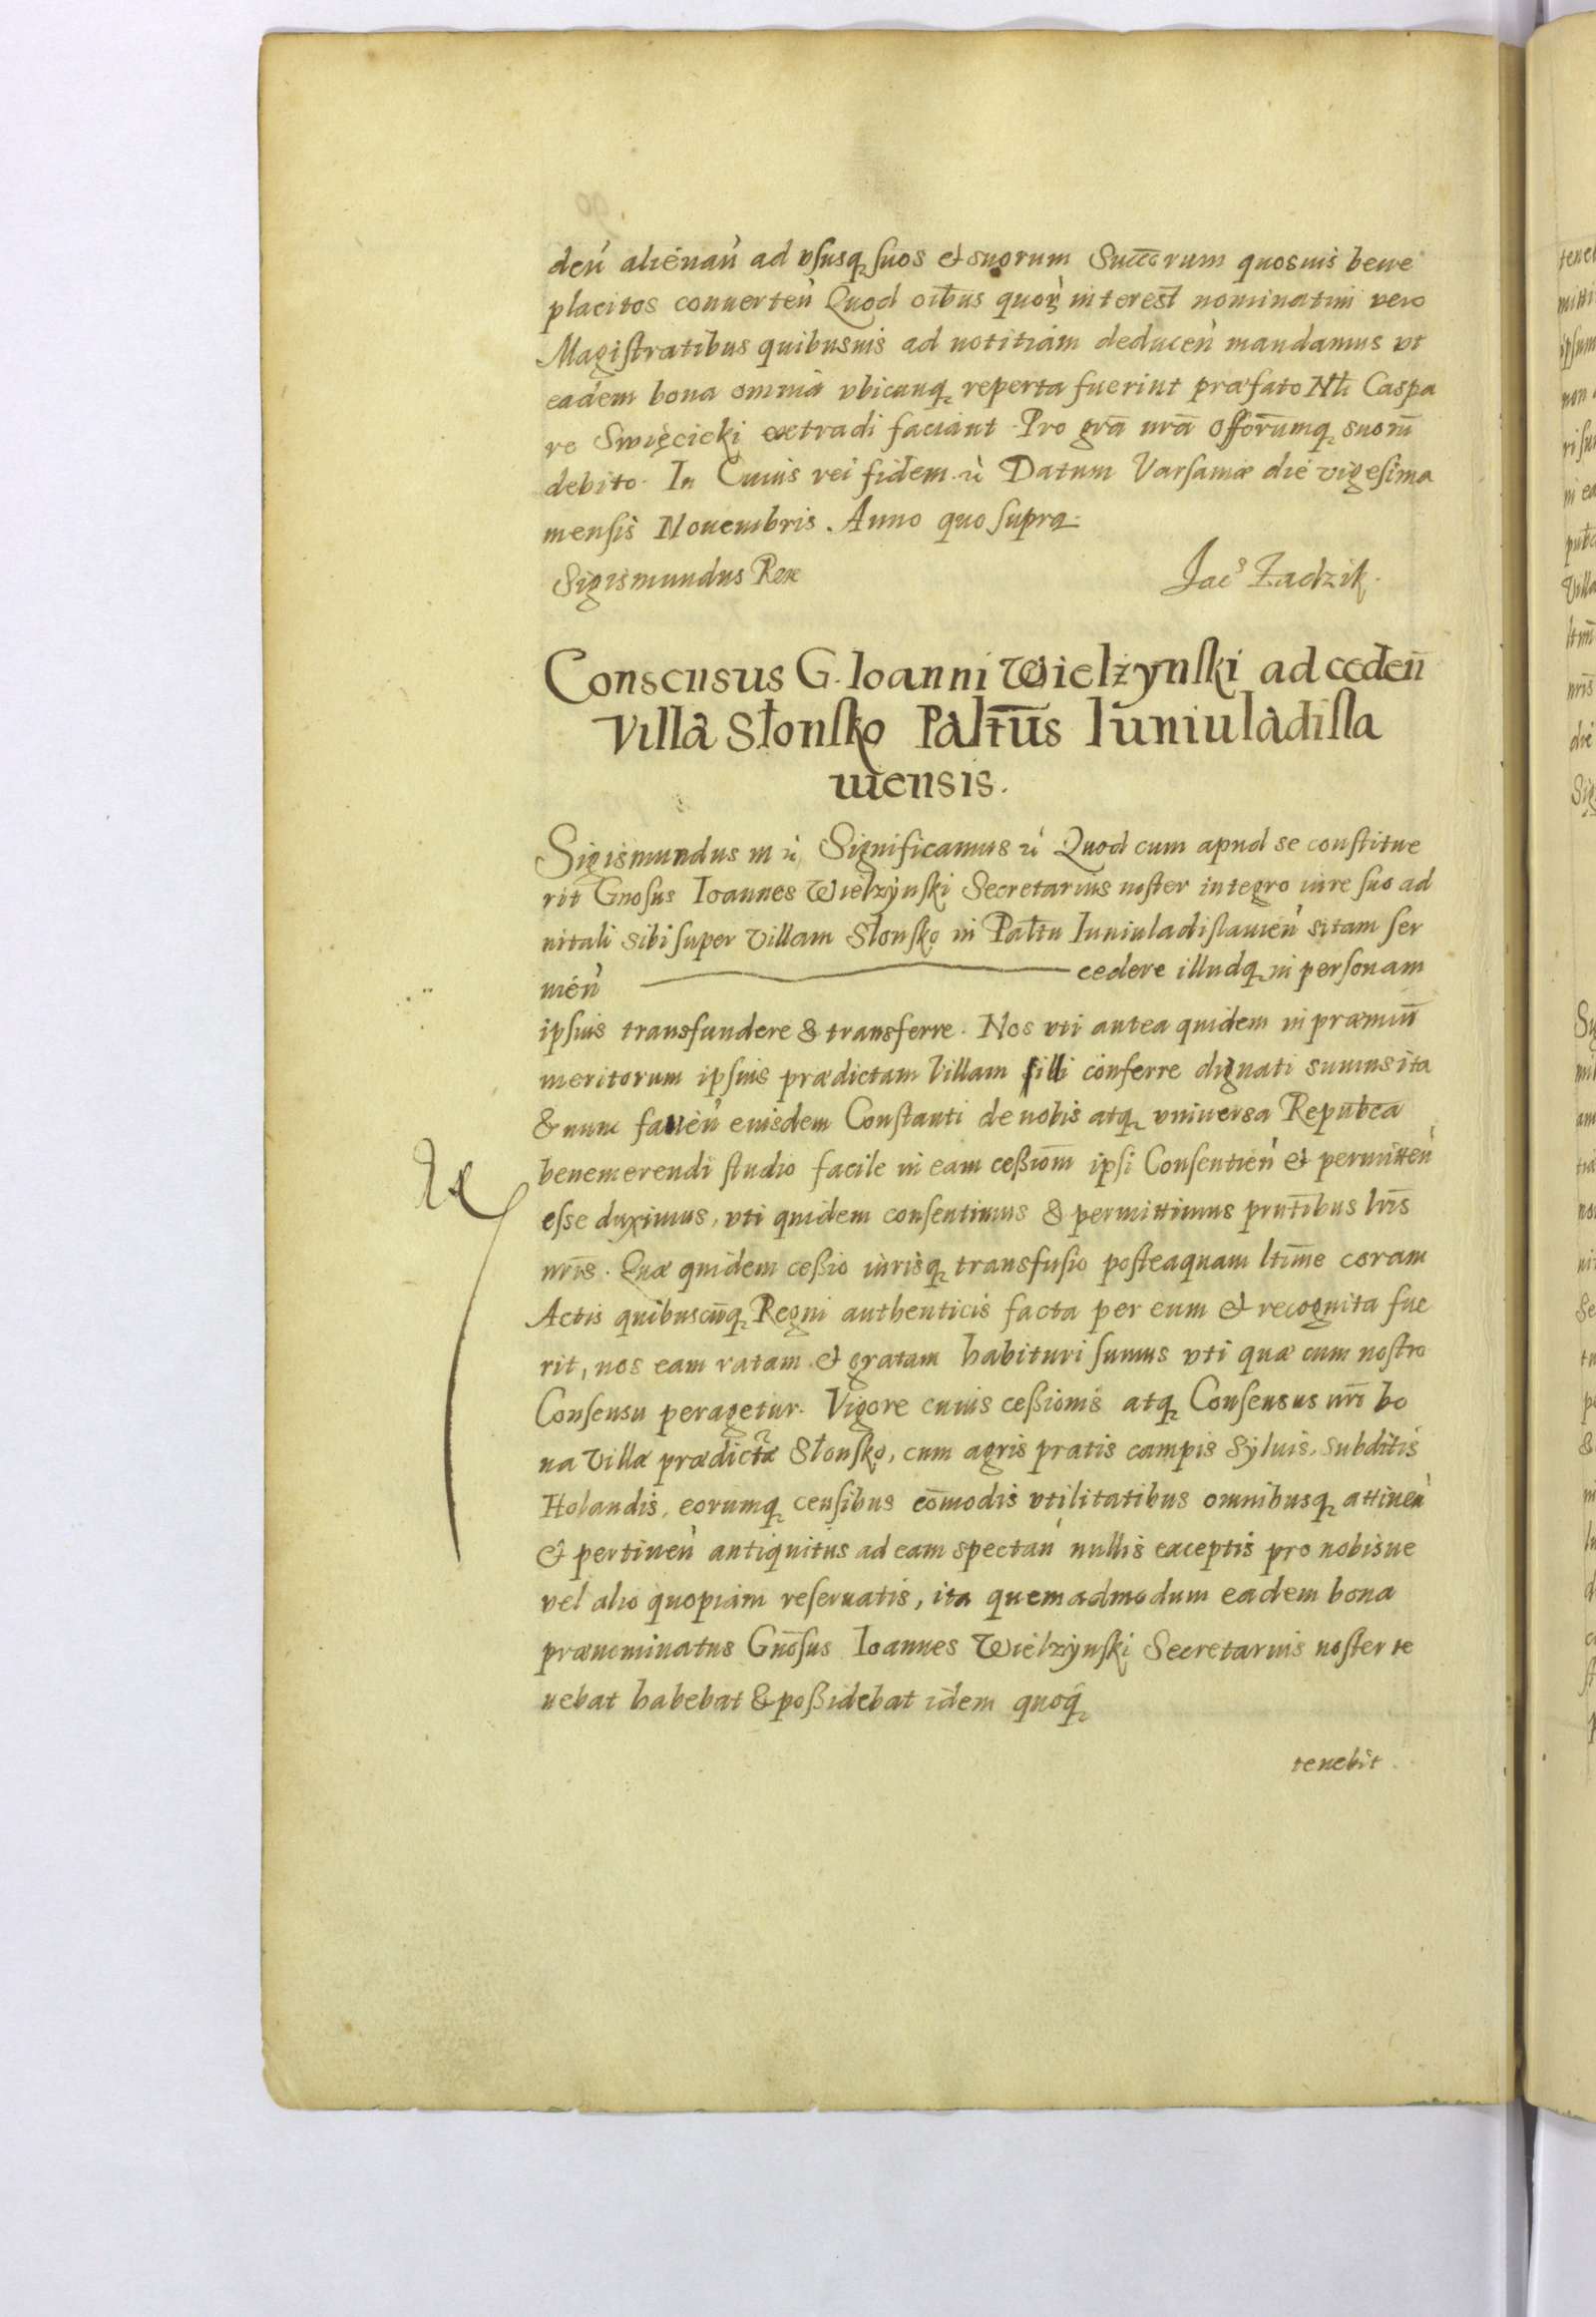 deń alienań ad vsusq suos et suorum Succ̄orum quosuis bene
placitos conuerteń Quod oībus quoꝝ interest nominatim vero
Magistratibus quibusuis ad notitiam deduceń mandamus vt
eadem bona omnia vbicunq reperta fuerint præfato Nli Caspa
re Swięcicki extradi faciant. Pro grā nrā Offōrumq suorū
debito. In Cuius rei fidem. ꝛć Datum Varsauiæ die vigesima
mensis Nouembris. Anno quo supra.
Sigismundus Rex
Jacs Zadzik.
Consensus G. Ioanni Wielżynski ad cedeń
Villa Słonsko Paltūs Iuniuladisla
uiensis.
Sigismundus III ꝛć, Significamus ꝛć Quod cum apud se constitue
rit Gnosus Ioannes Wielżynski Secretarius noster integro iure suo ad
uitali sibi super Villam Słonsko in Paltu Iuniuladislauień sitam ser
uień cedere illudq in personam
ipsius transfundere & transferre. Nos vti antea quidem in præmiū
meritorum ipsius prædictam Villam illi conferre dignati sumus ita
& nunc faueń eiusdem Constanti de nobis atq vniuersa Republca
benemerendi studio facile in eam ceßiom̄ ipsi Consentień et permitteń
esse duximus, vti quidem consentimus & permittimus pn̄tibus lrīs
nrīs. Quæ quidem ceßio iurisq transfusio posteaquam ltīme coram
Actis quibuscūq Regni authenticis facta per eum et recognita fue
rit, nos eam ratam et gratam habituri sumus vti quæ cum nostro
Consensu peragetur. Vigore cuius ceßionis atq Consensus nrī bo
na Villæ prædictæ Słonsko, cum agris pratis campis syluis, subditis
Holandis, eorumq censibus cōmodis vtilitatibus omnibusq attineń
et pertineń antiquitus ad eam spectań nullis exceptis pro nobisue
vel alio quopiam reseruatis, ita quemadmodum eadem bona
prænominatus Gnōsus Ioannes Wielżynski Secretarius noster te
nebat habebat & poßidebat idem quoq
tenebit.